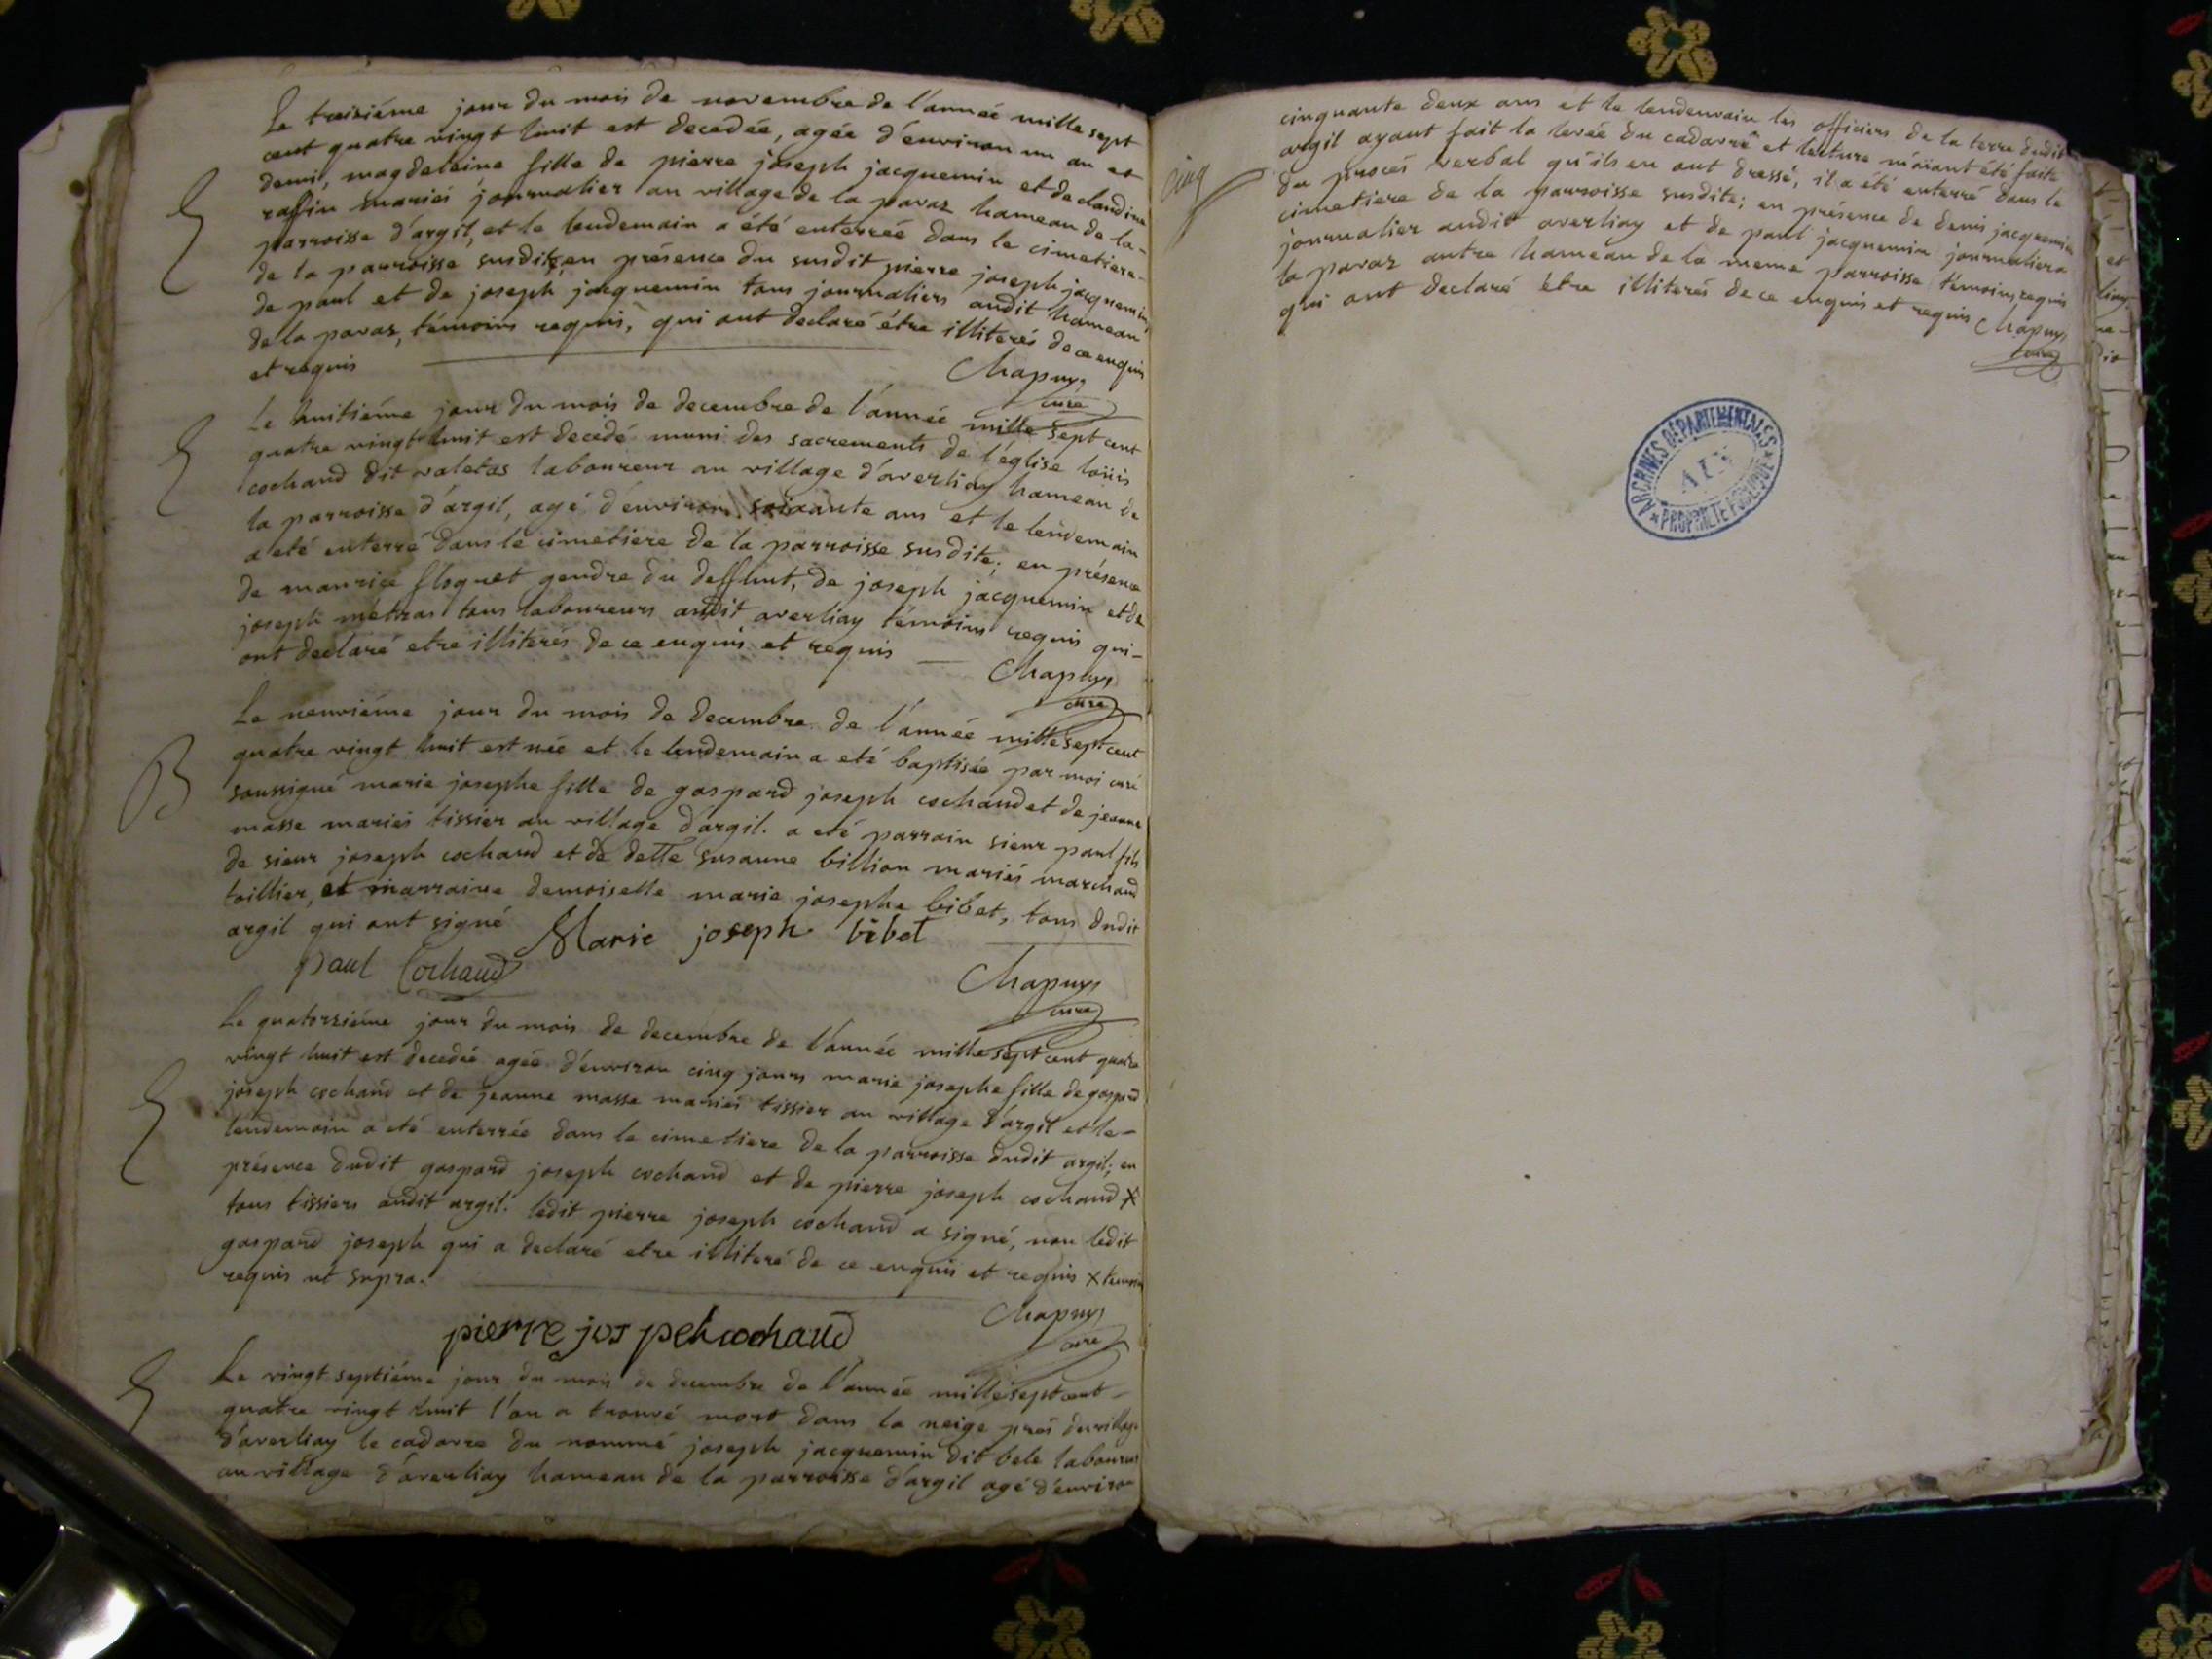 Le troisiéme jour du mois de novembre de l'année mille sept
cent quatre vingt huit est decedée, agée d'environ un an et
demi, magdeleine fille de pierre joseph jacquemin et de claudine
raffin mariés journalier au village de la pavaz hameau de la-
parroisse d'argil, et le lendemain a été enterrée dans le cimetiere-
de la parroisse susdite, en présence du susdit pierre joseph jacquemin,
de paul et de joseph jacquemin tous journaliers audit hameau
de la pavaz, témoins requis, qui ont declaré être illiterés de ce enquis
et requis
Chapuys
curé
Le huitiéme jour du mois de decembre de l'année mille sept cent
quatre vingt huit est decedé muni des sacrements de l'église loüis
cochand dit valetas laboureur au village d'averliay hameau de
la parroisse d'argil, agé d'environ soixante ans et le lendemain
a eté enterré dans le cimetiere de la parroisse susdite; en présence
de maurice floquet gendre du deffunt, de joseph jacquemin et de
joseph metras tous laboureurs audit averliay témoins requis qui-
ont declaré etre illiterés de ce enquis et requis
Chapuys
curé
Le neuviéme jour du mois de decembre de l'année mille sept cent
quatre vingt huit est née et le lendemain a eté baptisée par moi curé
B
soussigné marie josephe fille de gaspard joseph cochand et de jeanne
masse mariés tissier au village d'argil. a eté parrain sieur paul fils
de sieur joseph cochand et de delle susanne billion mariés marchand
toillier, et marraine demoiselle marie josephe bibet, tous dudit
argil qui ont signé
Marie joseph bibet
paul Cochaud
Chapuys
curé
Le quatorziéme jour du mois de decembre de l'année mille sept cent quatre
vingt huit est decedée agée d'environ cinq jours marie josephe fille de gaspard
joseph cochand et de jeanne masse mariés tissier au village d'argil et le-
lendemain a eté enterrée dans le cimetiere de la parroisse dudit argil; en
présence dudit gaspard joseph cochand et de pierre joseph cochand x
tous tissiers audit argil. ledit pierre joseph cochand a signé, non ledit
gaspard joseph qui a declaré etre illiteré de ce enquis et requis x temoin
requis ut supra.
Chapuys
curé
pierre jos peh cochaud
Le vingt septiéme jour du mois de decembre de l'année mille sept cent-
quatre vingt huit l'on a trouvé mort dans la neige prés du village
d'averliay le cadavre du nommé joseph jacquemin dit bele laboureur
au village d'averliay hameau de la parroisse d'argil agé d'environ
cinq
cinquante deux ans et le lendemain les officiers de la terre dudit
argil ayant fait la levée du cadavre et lecture m'aïant été faite
du procés verbal qu'ils en ont dressé, il a été enterré dans le
cimetiere de la parroisse susdite; en présence de denis jacquemin
journalier audit averliay et de paul jacquemin journalier a
la pavaz autre hameau de la meme parroisse témoins requis
qui ont declaré être illiterés de ce enquis et requis
Chapuys
curé
ARCHIVES DÉPARTEMENTALES
AIN
PROPRIÉTÉ PUBLIQUE